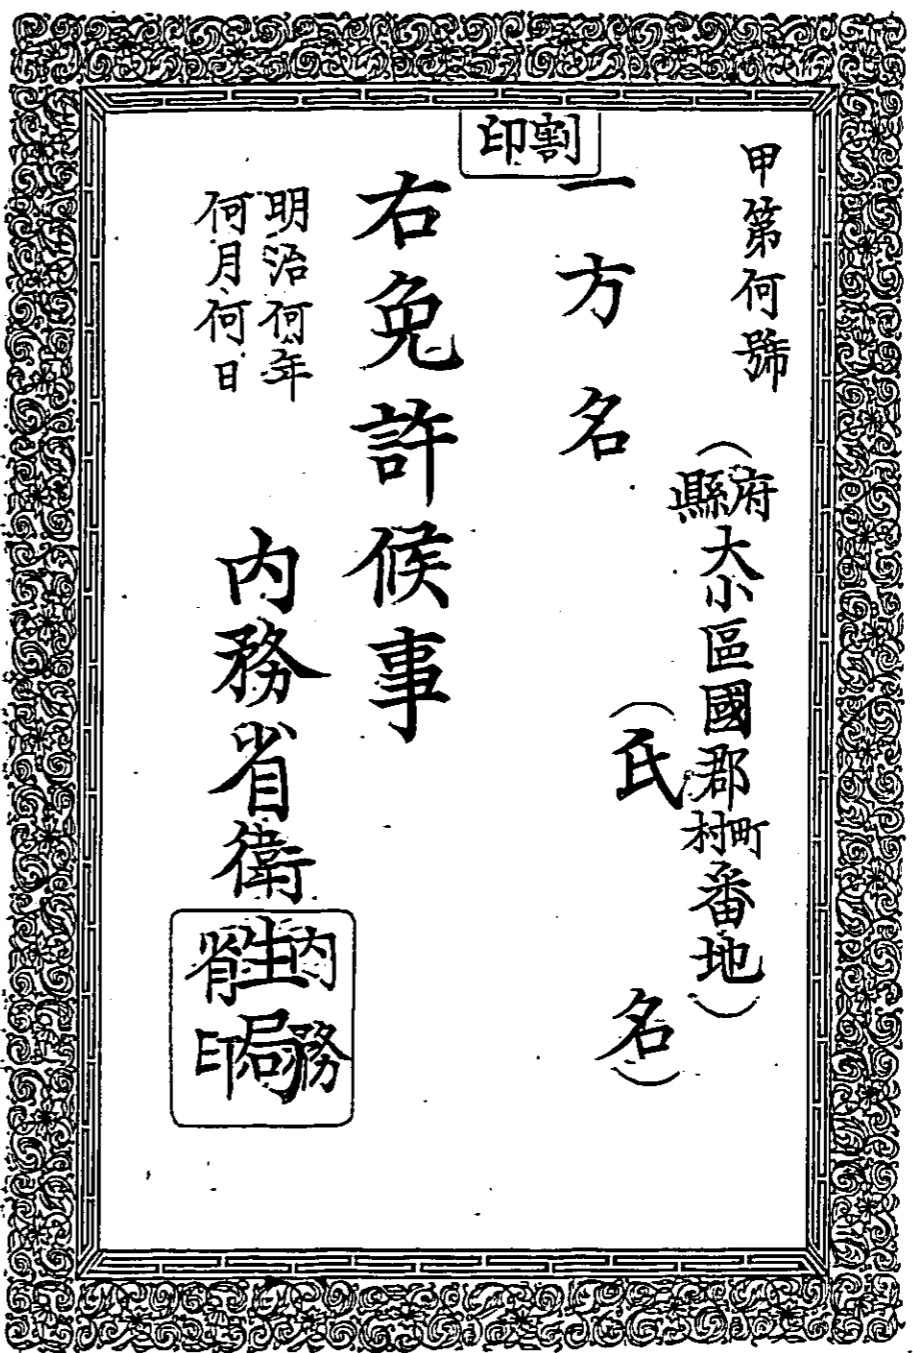 甲第何號
(府縣大小區國郡町村番地)
(氏名)
割印
一方名
右免許候事
明治何年
何月何日
内務省衛生局
内務省印